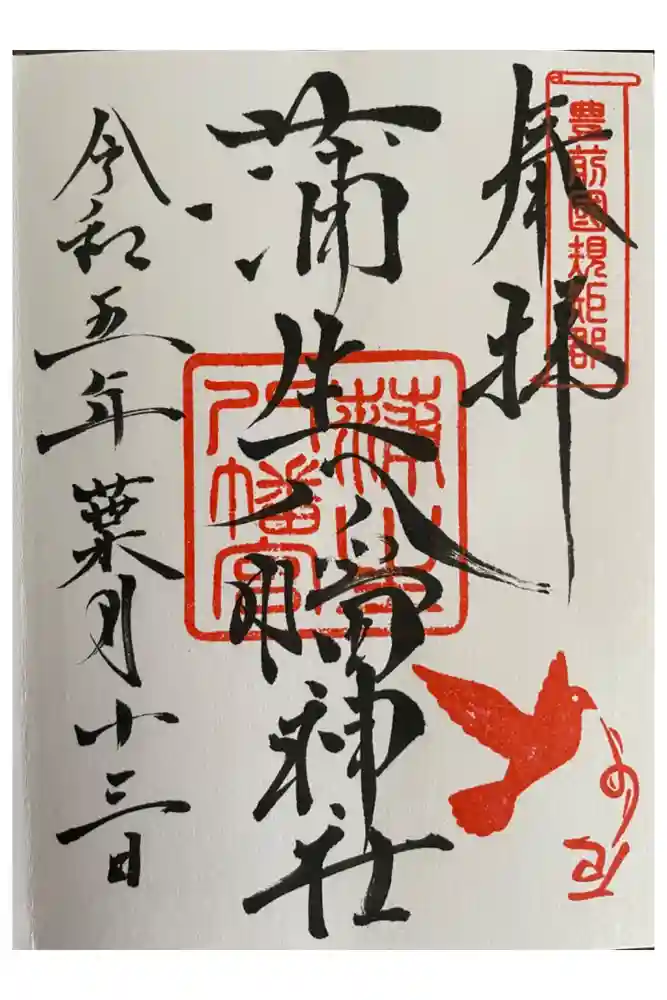 奉拝
豊前國規矩郡
蒲生八幡神社
蒲生
八幡宮
令和五年葉月三日